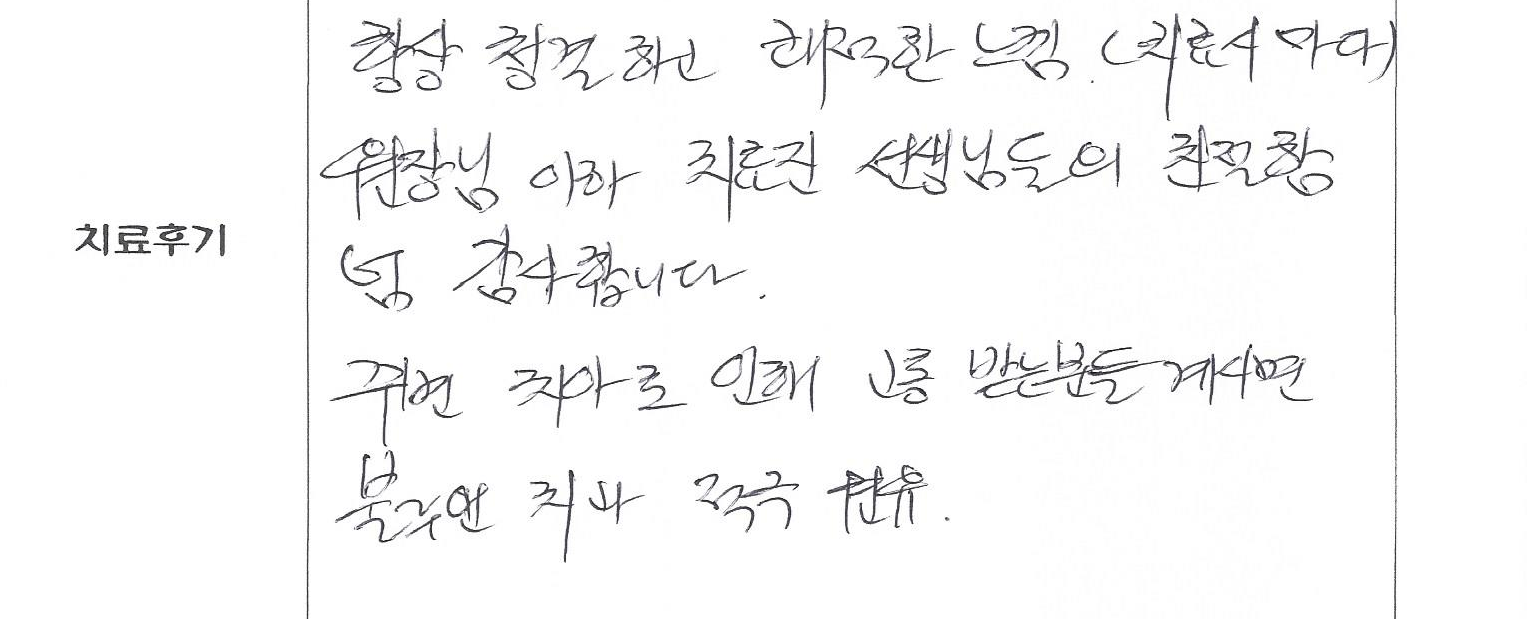 항상 청결하고 쾌적한 느낌. (치료시 마다)
원장님 이하 치료진 선생님들의 친절함
넘 감사합니다.
치료후기
주변 치아로 인해 고통 받는분들 계시면
치과 적극 권유.